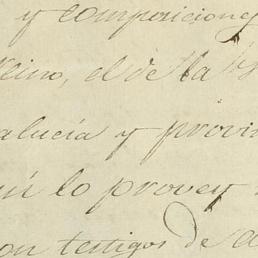 y composiciones
Reino, el de la
alucía y provin
lo proveyó
con testigos de